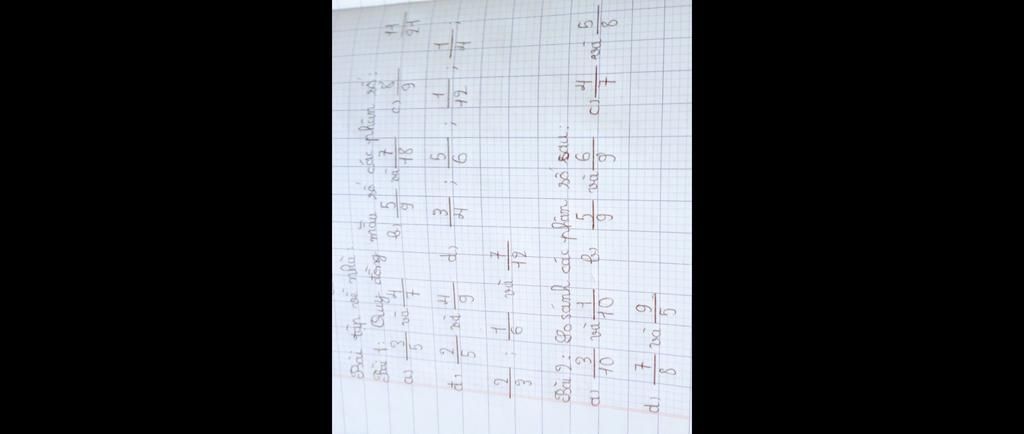 Bài tập về nhà:
Bài 1: Quy đồng mẫu số các phân số:
a) 3/5 và 4/7 b) 5/9 và 7/18 c) 8/9 11/21
d) 2/5 và 4/9 d) 3/4 ; 5/6 ; 1/12 ; 1/4 ;
2/3 ; 1/6 và 7/12
Bài 2: So sánh các phân số sau:
a) 3/10 và 1/10 b) 5/9 và 6/9 c) 4/7 và 5/8
d) 7/8 và 9/5